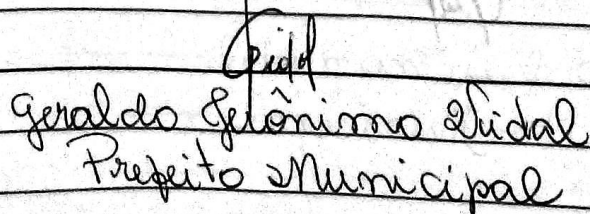 Geraldo Gerônimo Vidal
Prefeito Municipal